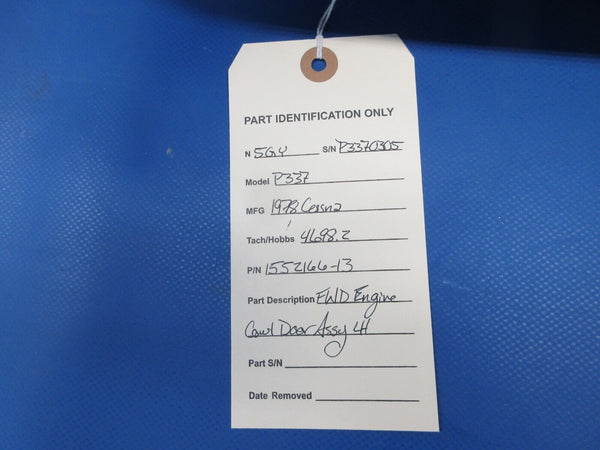 PART IDENTIFICATION ONLY
N 5GY S/N P3370305
Model P337
MFG 1978 Cessna
Tach/Hobbs 4698.2
P/N 1552166-13
Part Description FWD Engine
Cowl Door Assy LH
Part S/N
Date Removed